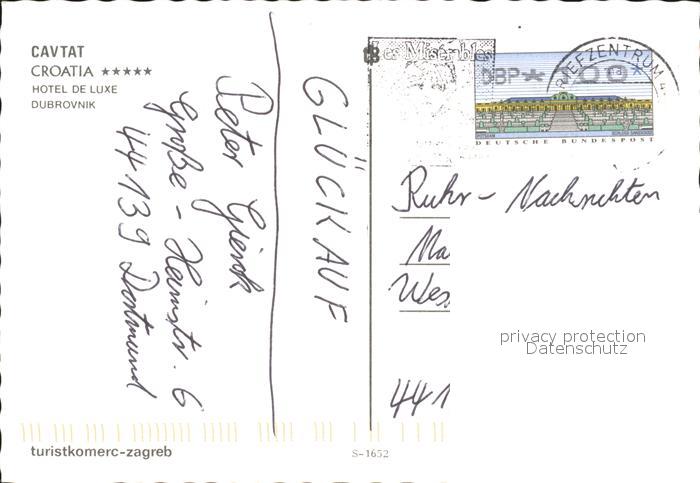 CAVTAT
CROATIA ★★★★★
HOTEL DE LUXE
DUBROVNIK
Peter
Große-Heimstr. 6
44139 Dortmund
GLÜCKAUF
Les Misérables
DBP*
BRIEFZENTRUM 4
DEUTSCHE BUNDESPOST
Ruhr-Nachrichten
Ma
Wes
441
privacy protection
Datenschutz
turistkomerc-zagreb
S-1652